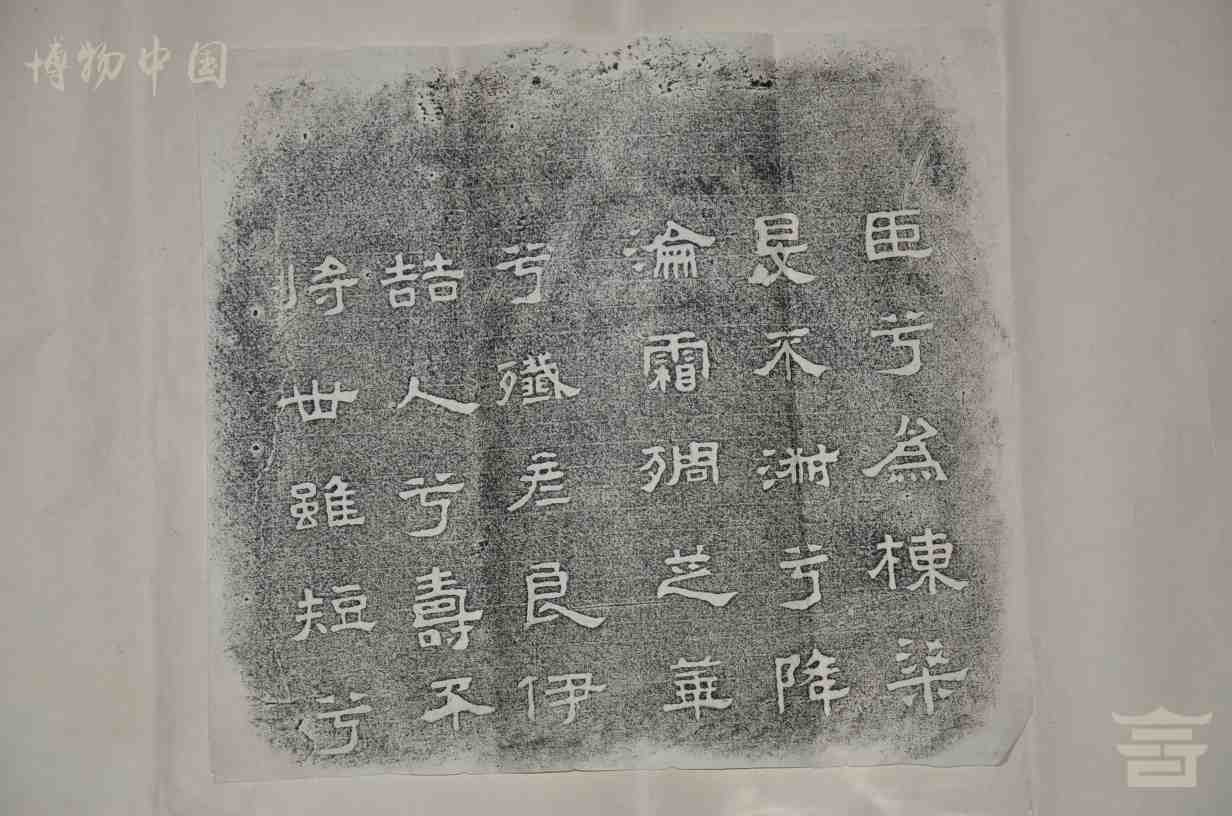 博物中国
臣兮為棟梁
旻不淑兮降
淪霜芝華
兮殲彦良伊
喆人兮壽不
將世雖短兮